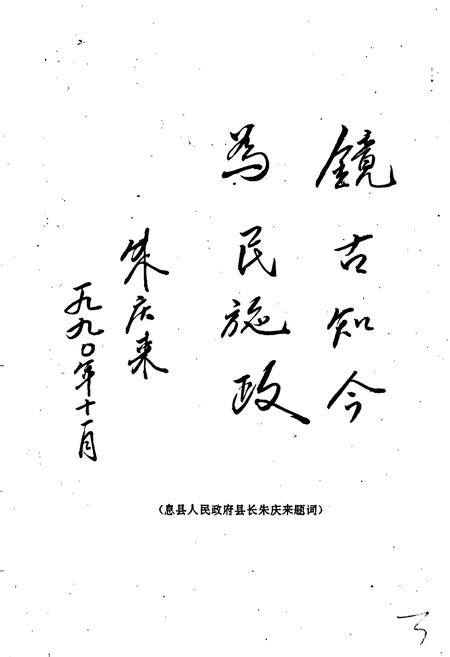 鏡古知今
為民施政
朱庆来
一九九〇年十一月
（息县人民政府县长朱庆来题词）